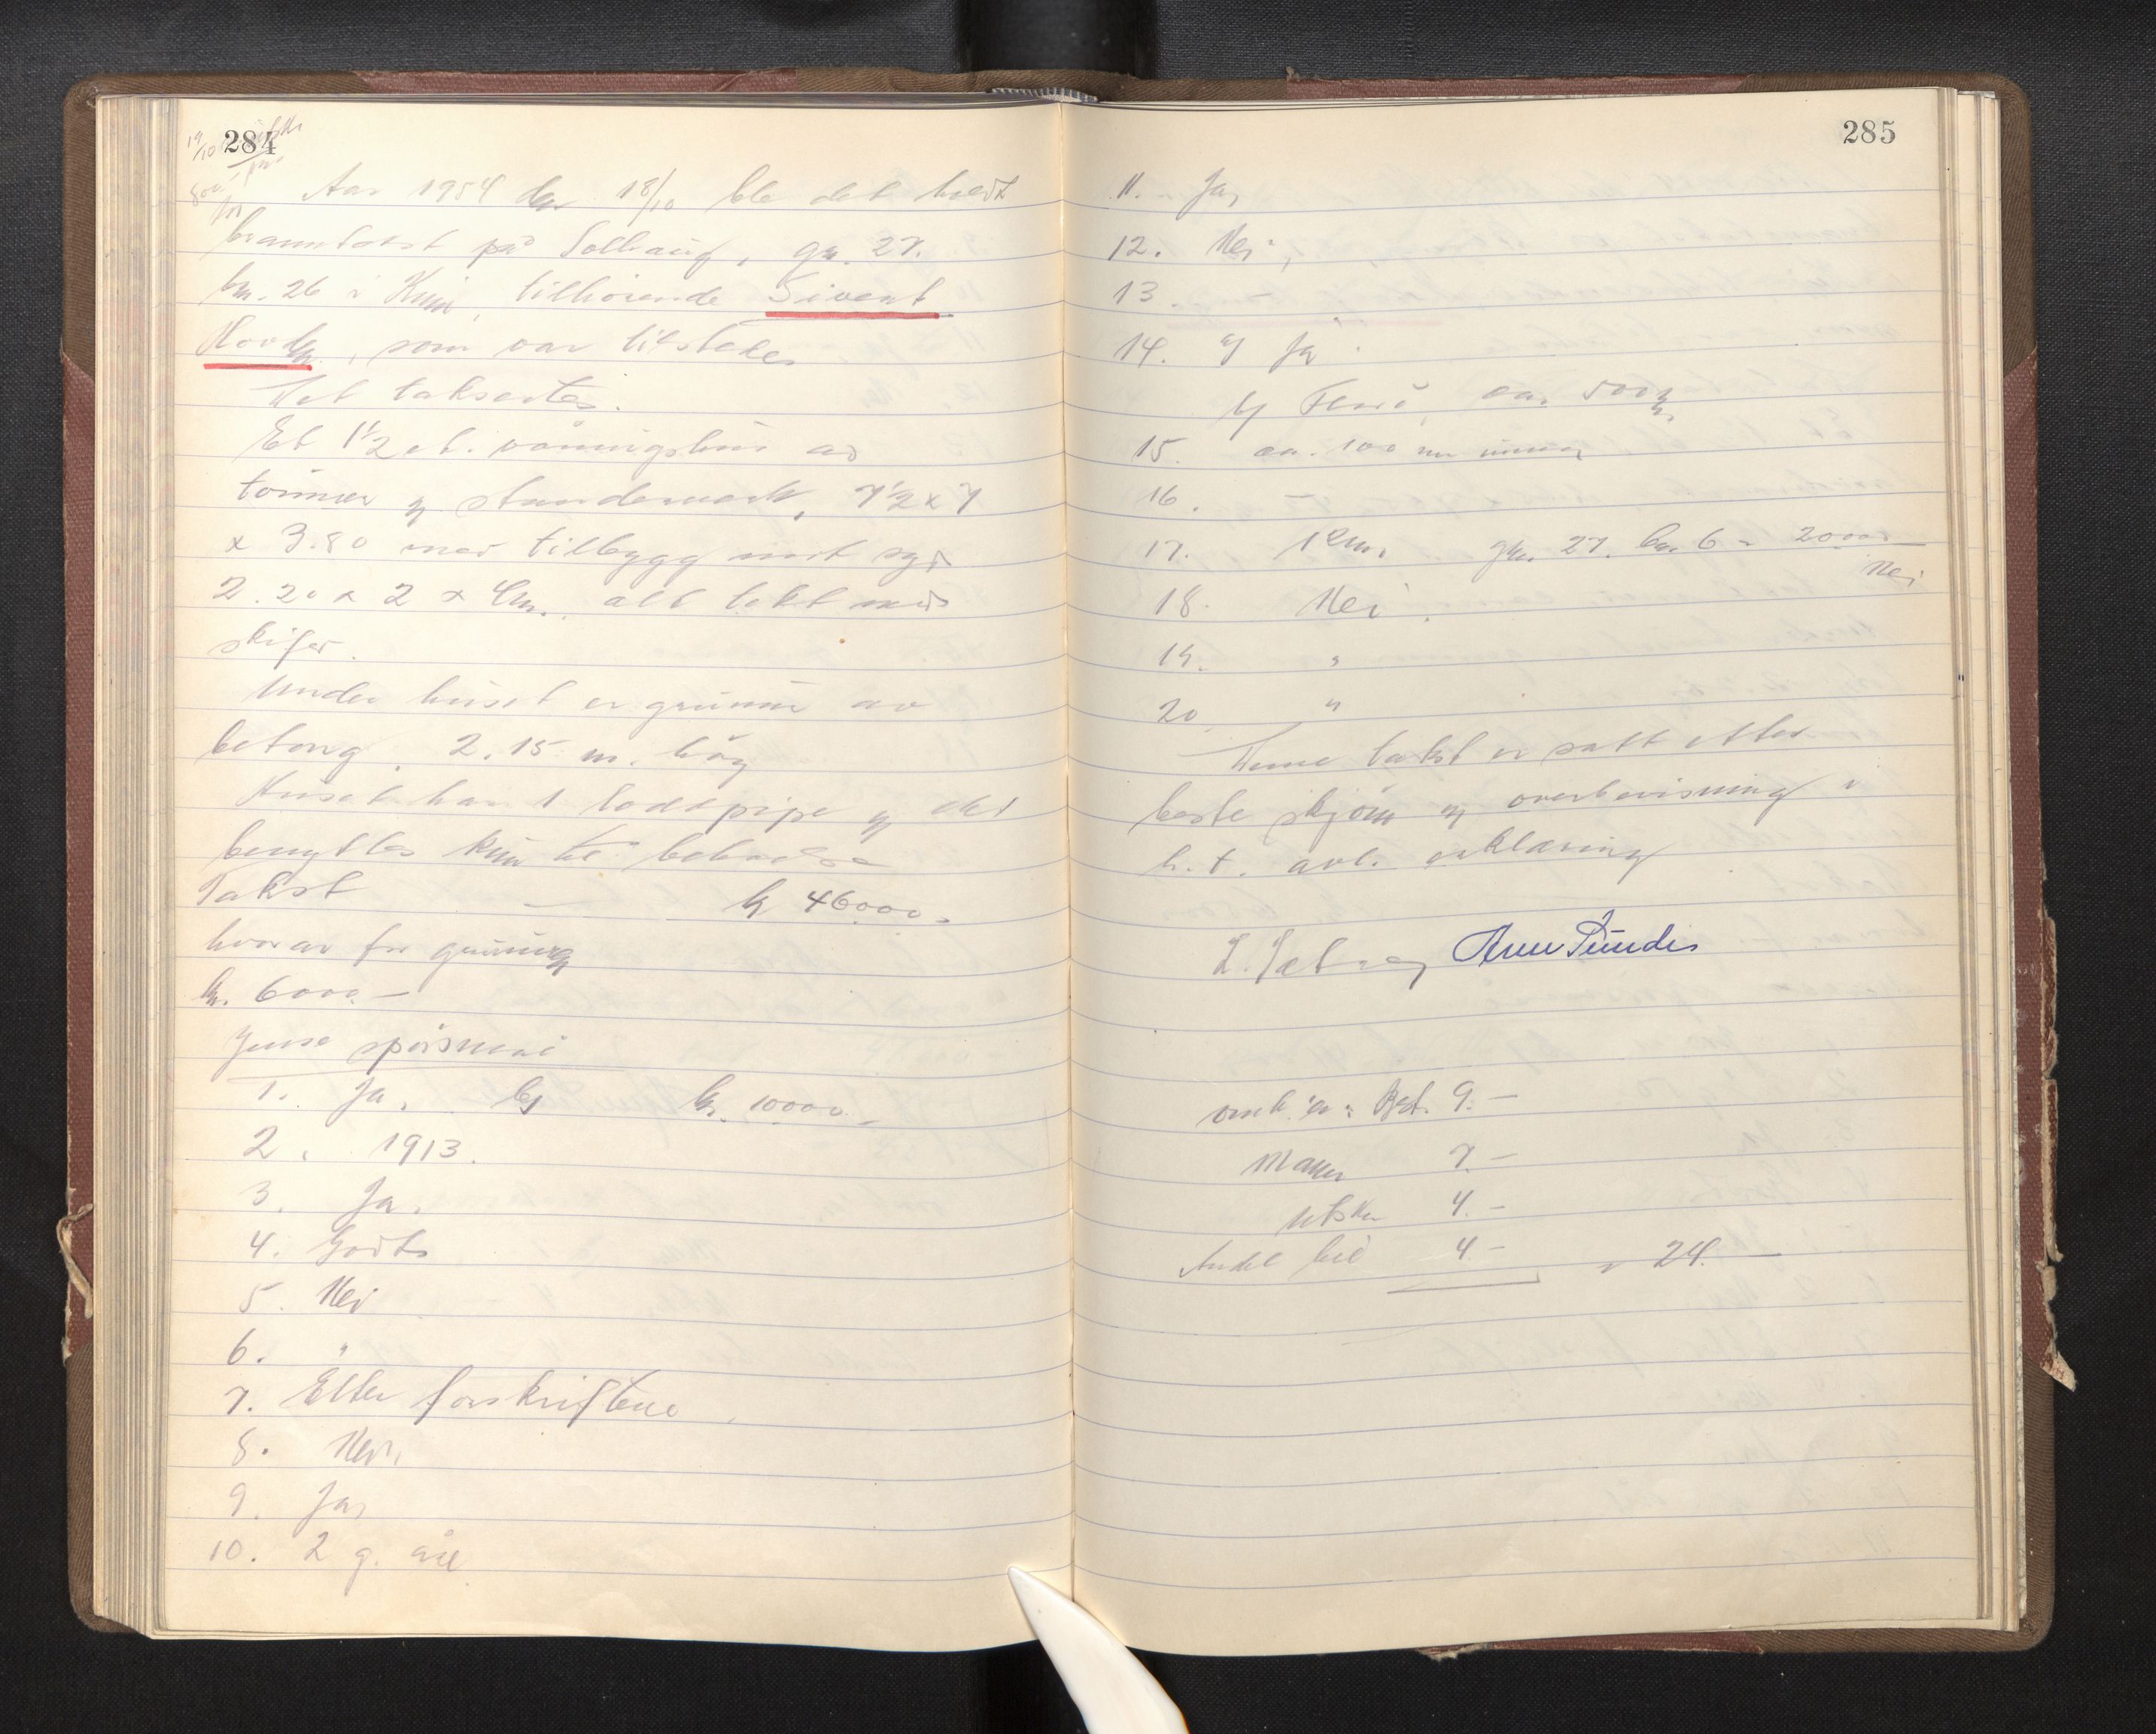 284
19/10
Aar 1954 den 18/10 ble det holdt
branntakst på Solhaug, gn. 27.
bn. 26 i Kvin, tilhørende Sivert
Hovden, som var tilstedes
Det taksertes.
Et 1 1/2 et. våningshus av
tømmer og standerverk, 7 1/2 x 7
x 3.80 med tilbygg mot syd
2.20 x 2 x 4 m. alt tekt med
skifer.
Under huset er grunnmur av
betong, 2.15 m. høg
Huset har 1 loddpipe og det
benyttes kun til beboelse
Takst kr 46000.-
hvorav for grunnmur
kr. 6000.-
Jense spørsmål
1. Ja. b) kr. 10000.-
2. 1913.
3. Ja.
4. Godt
5. Nei
6. "
7. Etter forskriftene
8. Nei.
9. Ja,
10. 2 g. årl
285
11. Ja,
12. Nei,
13.
14. a) Ja
b) Elvi, ca. 500
15. ca. 100 m
16.
17. 1 km. gn. 27. bn. 6 = 20000
Nei
18. Nei.
19. "
20 "
Denne takst er satt etter
beste skjønn og overbevisning i
h.t. avl. erklæring
Arne Sunde
omk. er: Best. 9.-
Mann 7.-
utskr 4.-
Andel bil 4.- " 24.-